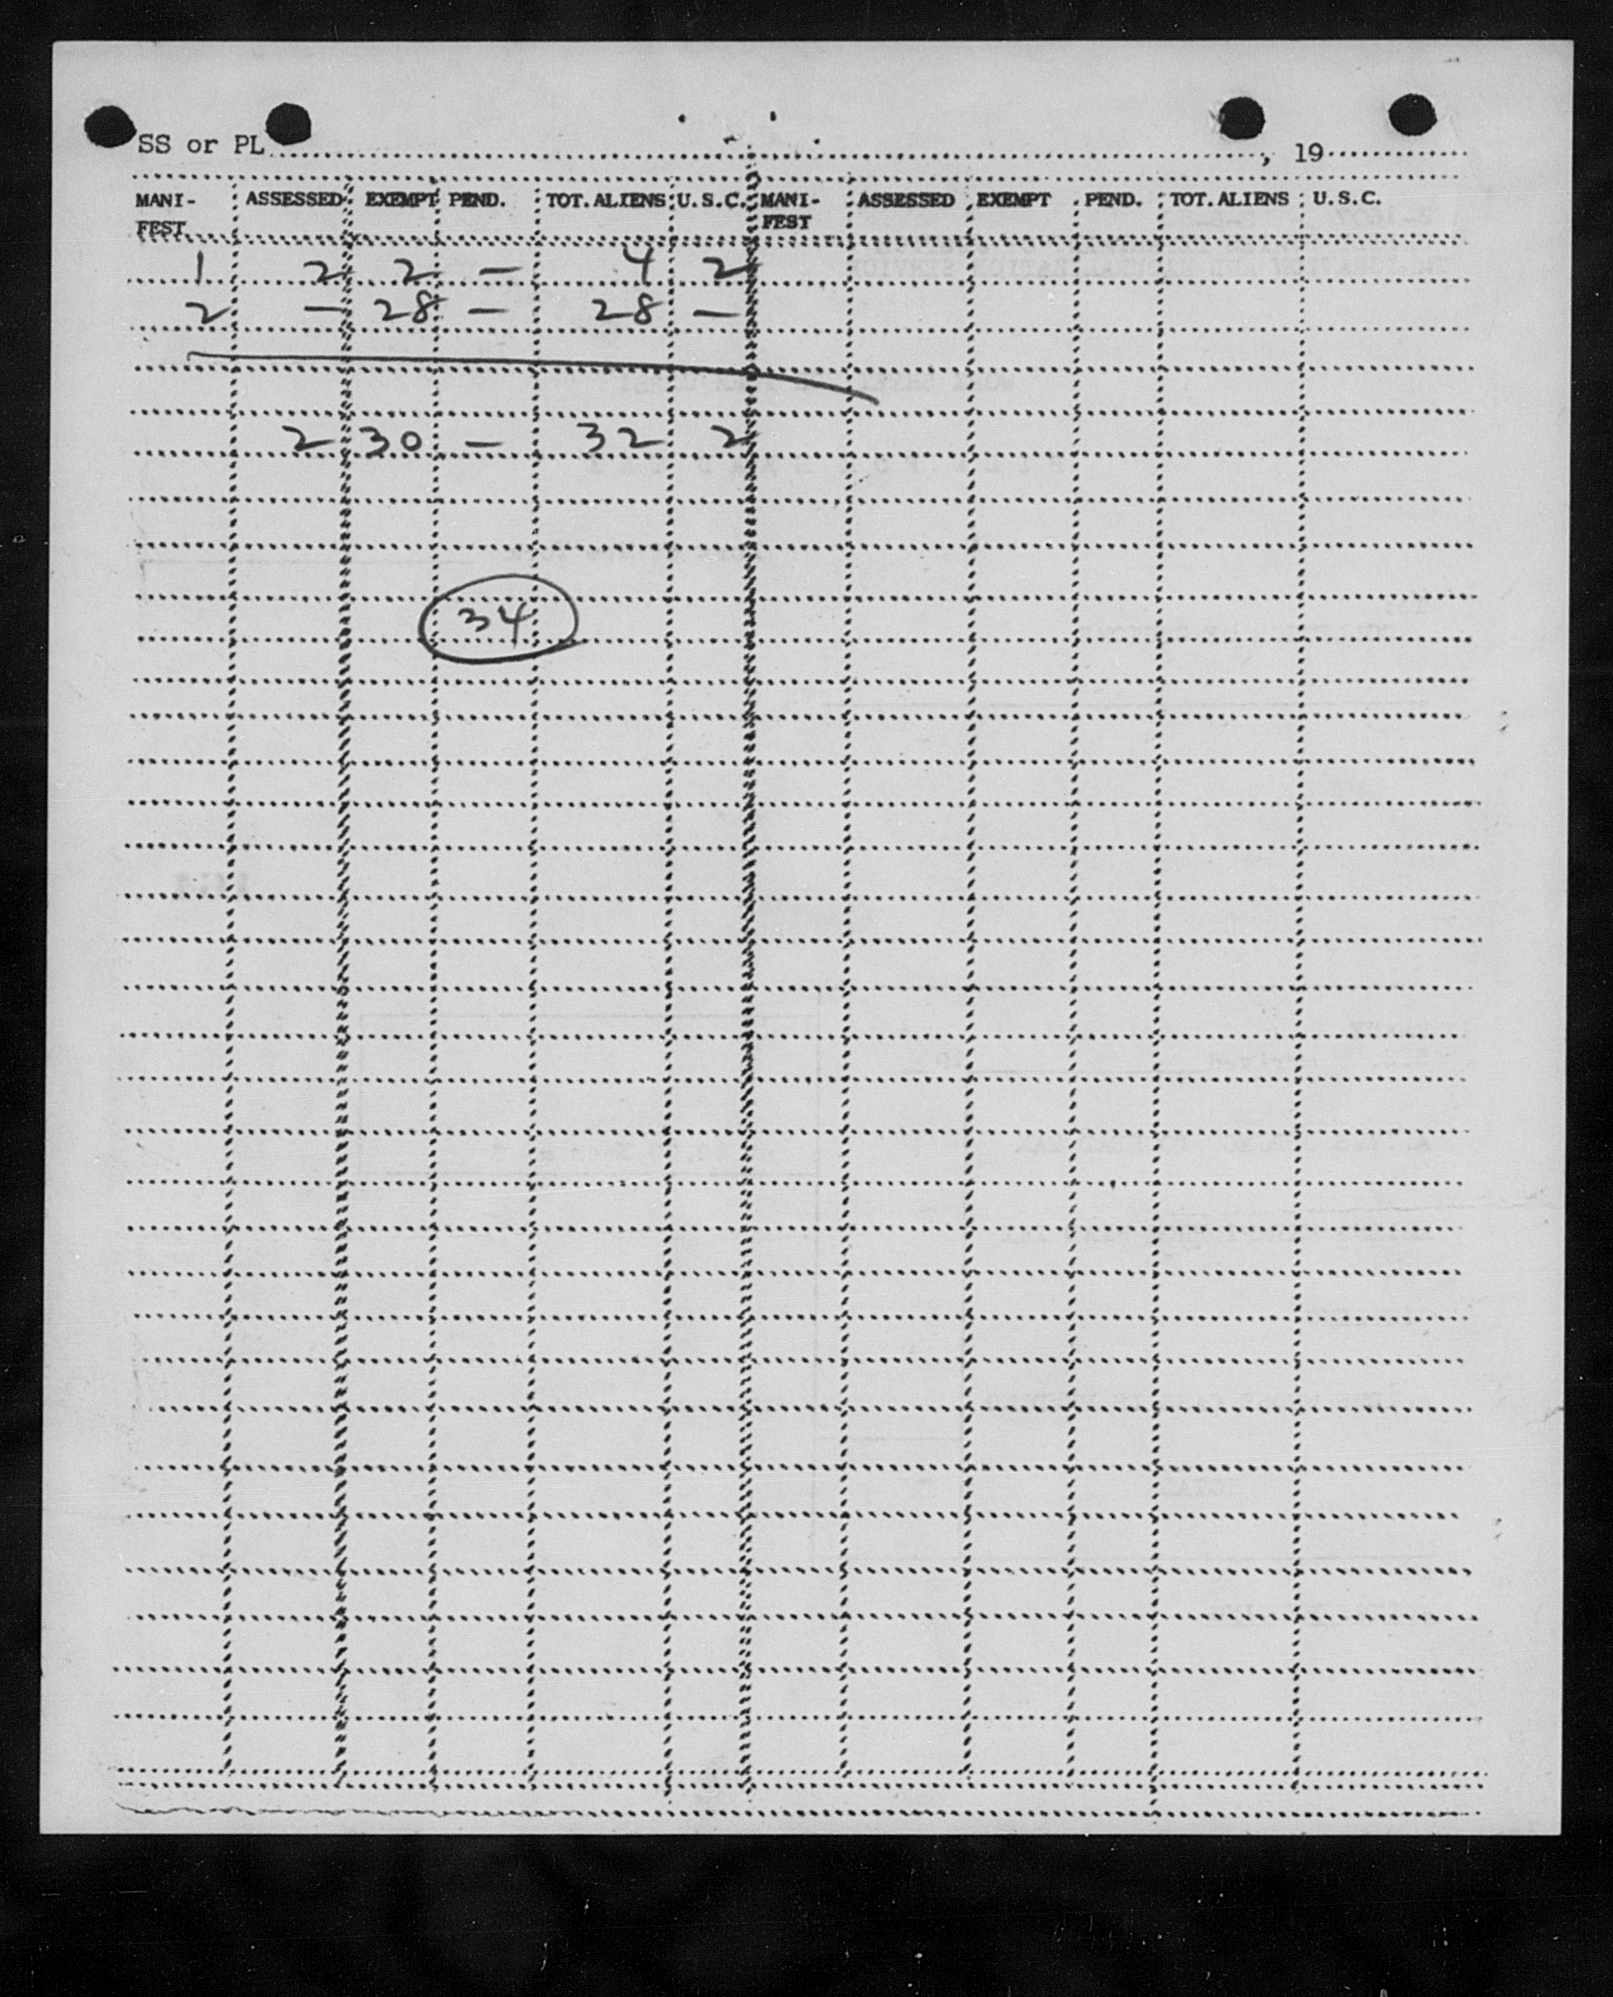 SS or PL ........, 19........
MANI- ASSESSED EXEMPT PEND. TOT. ALIENS U.S.C. MANI- ASSESSED EXEMPT PEND. TOT. ALIENS U.S.C.
FEST FEST
1 2 2 - 4 2
2 - 28 - 28 -
2 30 - 32 2
34